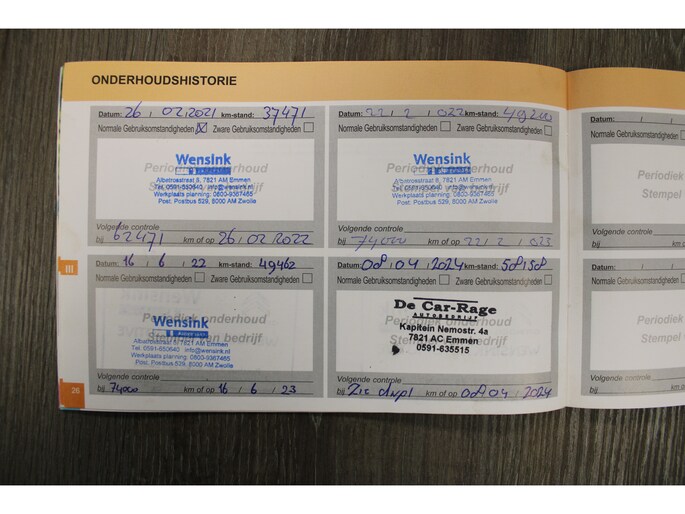 ONDERHOUDSHISTORIE
Datum: 26 / 02 / 2021 km-stand: 37471
Normale Gebruiksomstandigheden Zware Gebruiksomstandigheden
Periodiek onderhoud
Wensink
Albatrosstraat 8, 7821 AM Emmen
Tel. 0591-650640 info@wensink.nl
Werkplaats planning: 0800-9367465
Post: Postbus 529, 8000 AM Zwolle
Volgende controle
bij 62471 km of op 26.02.2022
Datum: 22 / 2 / 022 km-stand: 49200
Normale Gebruiksomstandigheden Zware Gebruiksomstandigheden
Periodiek onderhoud
Wensink
Albatrosstraat 8, 7821 AM Emmen
Tel. 0591-650640 info@wensink.nl
Werkplaats planning: 0800-9367465
Post: Postbus 529, 8000 AM Zwolle
Volgende controle
bij 74000 km of op 22 / 2 / 023
Datum: 16 / 6 / 22 km-stand: 49462
Normale Gebruiksomstandigheden Zware Gebruiksomstandigheden
Periodiek onderhoud
Wensink
Albatrosstraat 8, 7821 AM Emmen
Tel. 0591-650640 info@wensink.nl
Werkplaats planning: 0800-9367465
Post: Postbus 529, 8000 AM Zwolle
Volgende controle
bij 74000 km of op 16 / 6 / 23
Datum: 08 / 04 / 2024 km-stand: 58158
Normale Gebruiksomstandigheden Zware Gebruiksomstandigheden
De Car-Rage
AUTOBEDRIJF
Kapitein Nemostr. 4a
7821 AC Emmen
0591-635515
Volgende controle
bij Zie km of op 08 04 2024
Datum: / /
Normale Gebruiksomstandigh
Periodiek
Stempel
Volgende controle
bij
Datum: / /
Normale Gebruiksomstandigh
Periodiek
Stempel
Volgende controle
bij
III
26